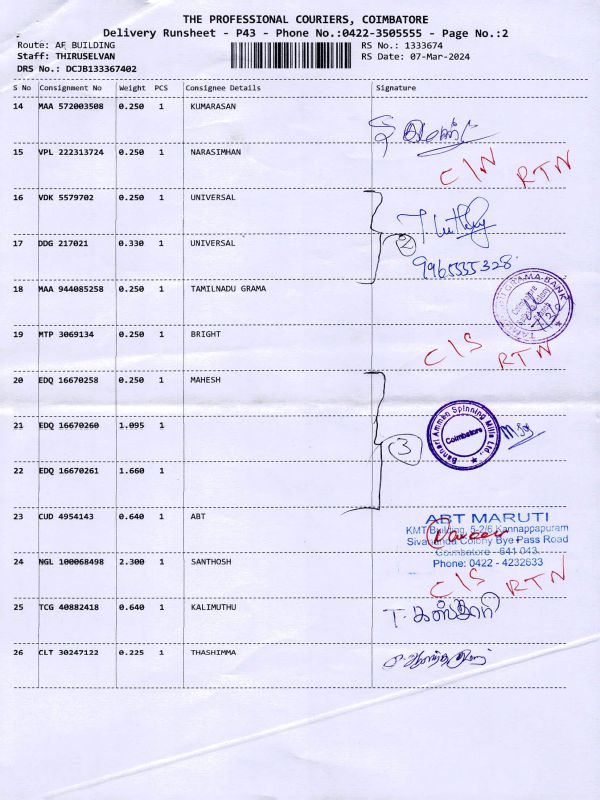 THE PROFESSIONAL COURIERS, COIMBATORE
Delivery Runsheet - P43 - Phone No.:0422-3505555 - Page No.:2
Route: AF BUILDING
RS No.: 1333674
Staff: THIRUSELVAN
RS Date: 07-Mar-2024
DRS No.: DCJB133367402
S No Consignment No Weight PCS Consignee Details Signature
14 MAA 572003508 0.250 1 KUMARASAN
15 VPL 222313724 0.250 1 NARASIMHAN
C/N RTN
16 VDK 5579702 0.250 1 UNIVERSAL
17 DDG 217021 0.330 1 UNIVERSAL
2
9965555328
18 MAA 944085258 0.250 1 TAMILNADU GRAMA
19 MTP 3069134 0.250 1 BRIGHT
C/S RTN
20 EDQ 16670258 0.250 1 MAHESH
21 EDQ 16670260 1.095 1
Bannari Amman Spinning Mills Ltd.,
Coimbatore
3
22 EDQ 16670261 1.660 1
23 CUD 4954143 0.640 1 ABT
ABT MARUTI
KMT Building, 5-2/6 Kannappapuram
Sivananda Colony Bye Pass Road
Coimbatore - 641 043.
Phone: 0422 - 4232633
24 NGL 100068498 2.300 1 SANTHOSH
C/S RTN
25 TCG 40882418 0.640 1 KALIMUTHU
26 CLT 30247122 0.225 1 THASHIMMA